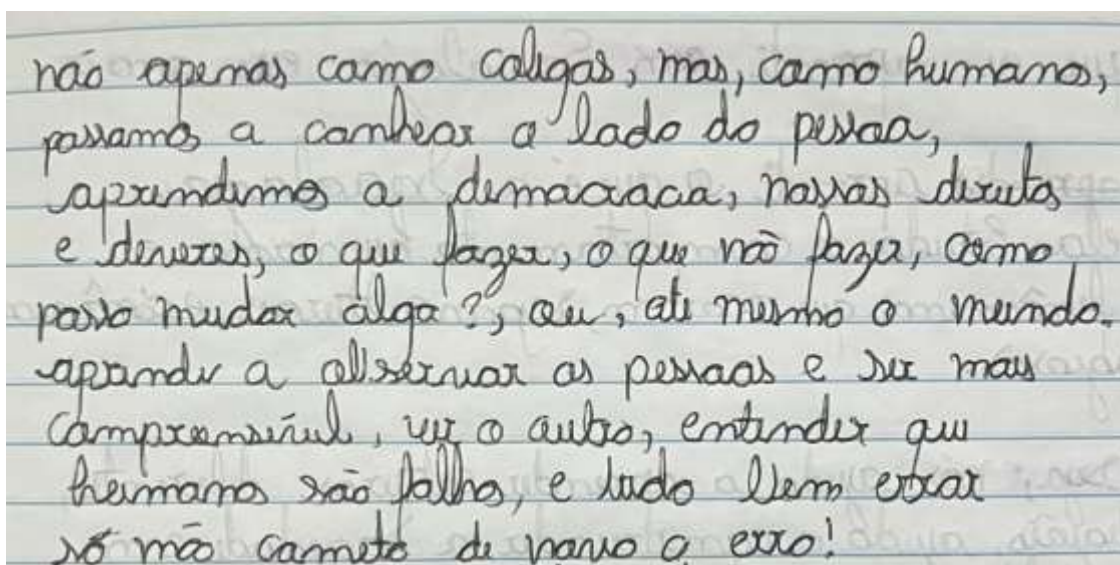 não apenas como colegas, mas, como humanos,
passamos a conhecer o lado do pessoa,
aprendemos a democraca, nossos direitos
e deveres, o que fazer, o que não fazer, como
posso mudar algo?, ou, até mesmo o mundo.
aprendi a observar as pessoas e ser mais
compreensível, ver o outro, entender que
humanos são falhos, e tudo bem errar
só não cometo de novo o erro!